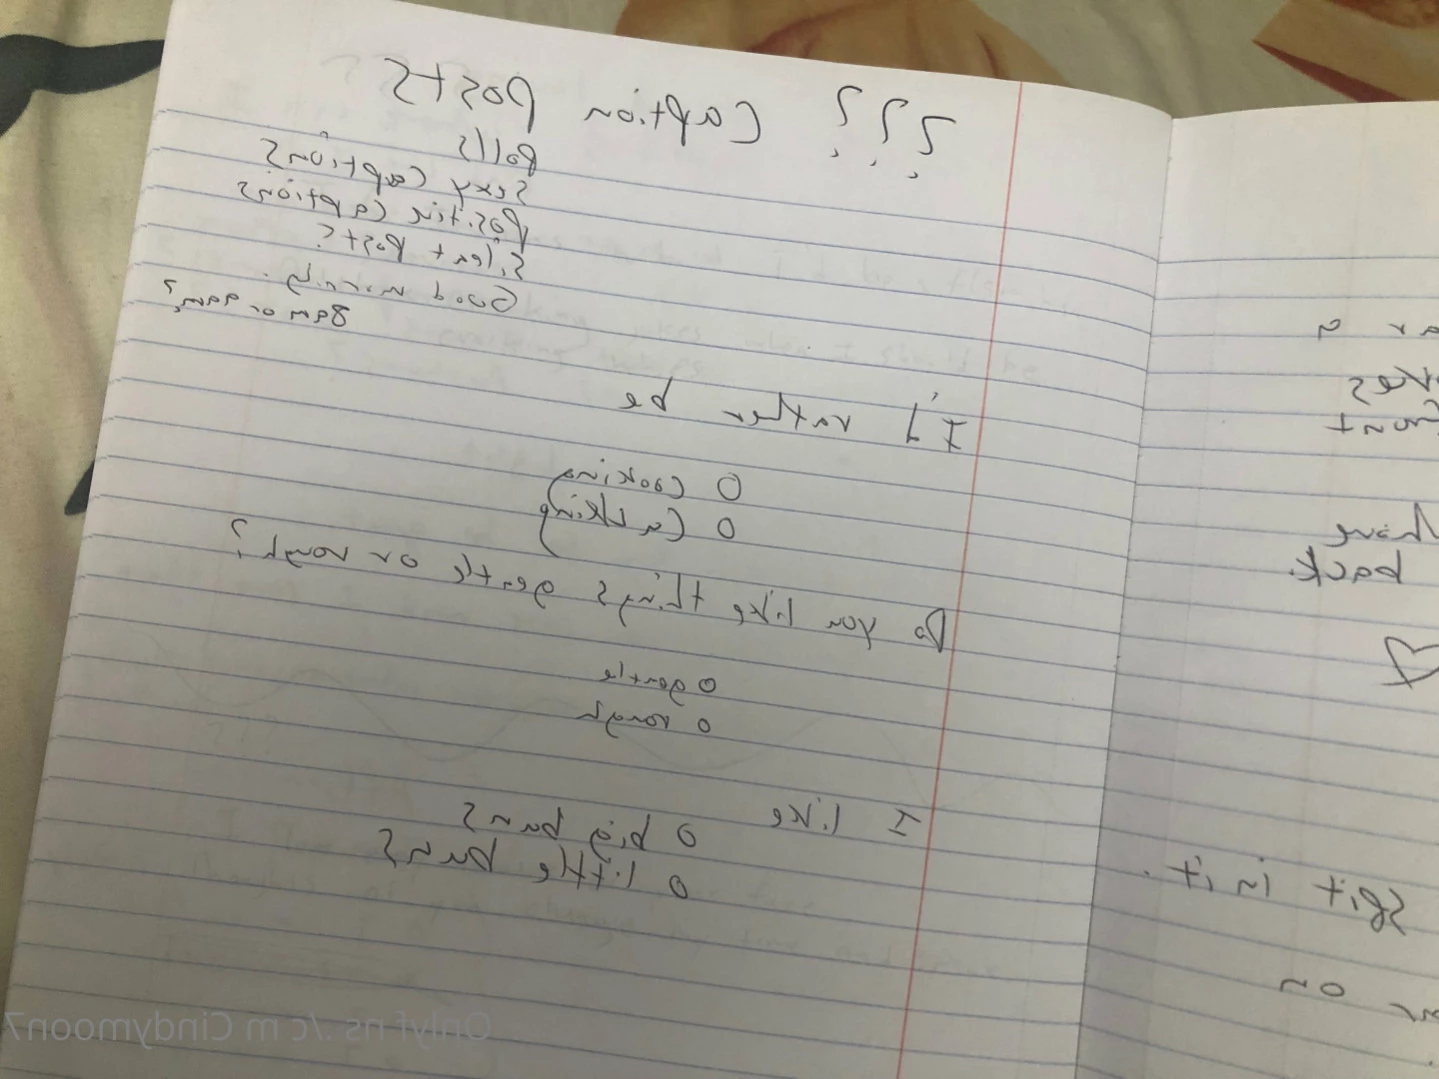 ??? Caption posts
Polls
Sexy Captions
Positive Captions
Silent posts
Good morning.
8am or 9am?
I'd rather be
O Cooking
O Caulking
Do you like things gentle or rough?
O gentle
O rough
I like O big buns
O little buns
back.
Spit in it.
on